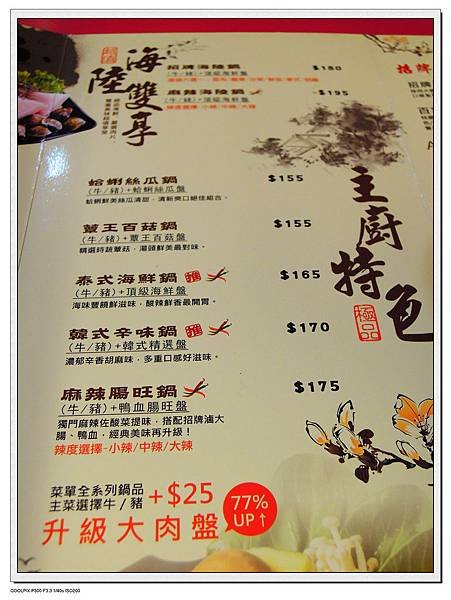 海陸雙享
招牌海陸鍋 $180
(牛/豬)+頂級海鮮盤
麻辣海陸鍋 $195
(牛/豬)+頂級海鮮盤
辣度選擇-小辣/中辣/大辣
主廚特色
極品
蛤蜊絲瓜鍋 $155
(牛/豬)+蛤蜊絲瓜盤
蛤蜊鮮美絲瓜清甜，清新爽口絕佳組合。
蕈王百菇鍋 $155
(牛/豬)+蕈王百菇盤
精選時蔬蕈菇，湯頭鮮美最對味。
泰式海鮮鍋 推 $165
(牛/豬)+頂級海鮮盤
海味豐饒鮮滋味，酸辣鮮香最開胃。
韓式辛味鍋 推 $170
(牛/豬)+韓式精選盤
濃郁辛香胡麻味，多重口感好滋味。
麻辣腸旺鍋 $175
(牛/豬)+鴨血腸旺盤
獨門麻辣佐酸菜提味，搭配招牌滷大
腸、鴨血，經典美味再升級！
辣度選擇-小辣/中辣/大辣
菜單全系列鍋品
主菜選擇牛/豬 +$25
升級大肉盤
77%
UP↑
COOLPIX P300 F3.3 1/40s ISO200